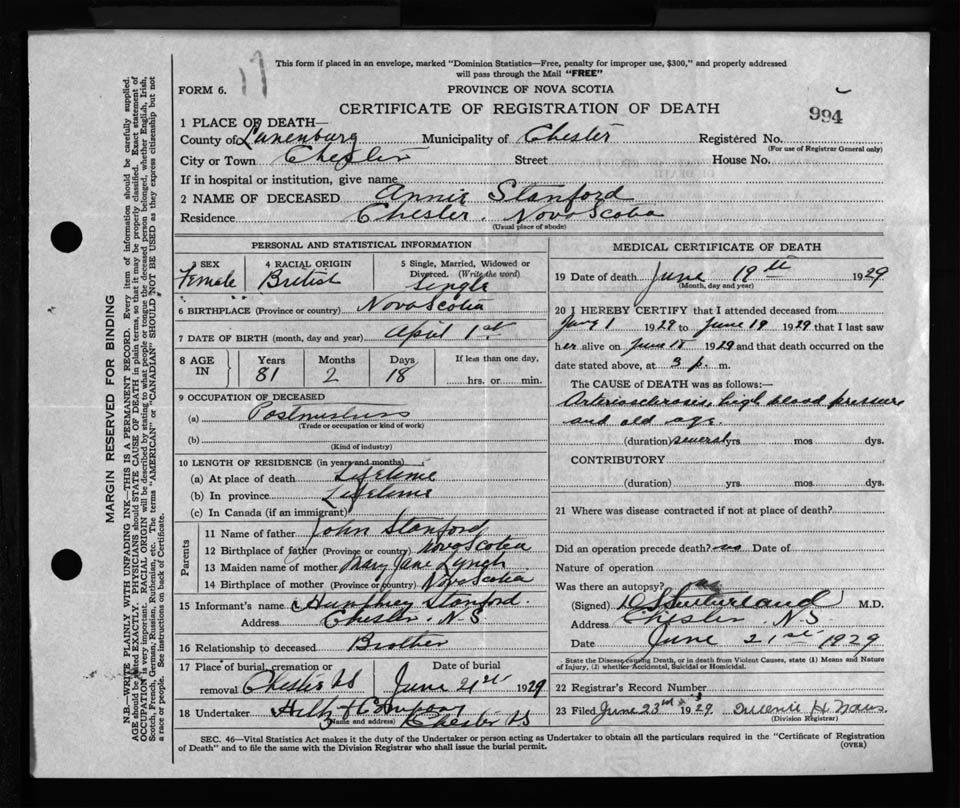 17
This form if placed in an envelope, marked "Dominion Statistics—Free, penalty for improper use, $300," and properly addressed
will pass through the Mail "FREE"
FORM 6.
PROVINCE OF NOVA SCOTIA
CERTIFICATE OF REGISTRATION OF DEATH
994
1 PLACE OF DEATH—
County of Lunenburg Municipality of Chester Registered No.
(For use of Registrar General only)
City or Town Chester Street House No.
If in hospital or institution, give name
2 NAME OF DECEASED Annie Stanford
Residence Chester. Nova Scotia
(Usual place of abode)
PERSONAL AND STATISTICAL INFORMATION
3 SEX Female
4 RACIAL ORIGIN British
5 Single, Married, Widowed or
Divorced. (Write the word)
Single
6 BIRTHPLACE (Province or country) Nova Scotia
7 DATE OF BIRTH (month, day and year) April 1st
8 AGE IN Years Months Days If less than one day,
81 2 18 hrs. or min.
9 OCCUPATION OF DECEASED
(a) Postmistress
(Trade or occupation or kind of work)
(b)
(Kind of industry)
10 LENGTH OF RESIDENCE (in years and months)
(a) At place of death Lifetime
(b) In province Lifetime
(c) In Canada (if an immigrant)
Parents
11 Name of father John Stanford
12 Birthplace of father (Province or country) Nova Scotia
13 Maiden name of mother Mary Jane Lynch
14 Birthplace of mother (Province or country) Nova Scotia
15 Informant's name Humphrey Stanford.
Address Chester. N.S
16 Relationship to deceased Brother
17 Place of burial, cremation or
removal Chester NS
Date of burial
June 21st 1929
18 Undertaker & Company
(Name and address) Chester NS
MEDICAL CERTIFICATE OF DEATH
19 Date of death June 19th 1929
(Month, day and year)
20 I HEREBY CERTIFY that I attended deceased from
1929 to June 19 1929 that I last saw
her alive on June 18 1929 and that death occurred on the
date stated above, at 3 p. m.
The CAUSE of DEATH was as follows:—
Arteriosclerosis, high blood pressure
and old age.
(duration) several yrs mos dys.
CONTRIBUTORY
(duration) yrs. mos dys.
21 Where was disease contracted if not at place of death?
Did an operation precede death? no Date of
Nature of operation
Was there an autopsy? no
(Signed) Sutherland M.D.
Address Chester N.S
Date June 21st 1929
State the Disease causing Death, or in death from Violent Causes, state (1) Means and Nature
of Injury, (2) whether Accidental, Suicidal or Homicidal.
22 Registrar's Record Number
23 Filed June 23rd 1929.
(Division Registrar)
SEC. 46—Vital Statistics Act makes it the duty of the Undertaker or person acting as Undertaker to obtain all the particulars required in the "Certificate of Registration
of Death" and to file the same with the Division Registrar who shall issue the burial permit.
(OVER)
MARGIN RESERVED FOR BINDING
N.B.—WRITE PLAINLY WITH UNFADING INK—THIS IS A PERMANENT RECORD. Every item of information should be carefully supplied.
AGE should be stated EXACTLY. PHYSICIANS should STATE CAUSE OF DEATH in plain terms, so that it may be properly classified. Exact statement of
OCCUPATION is very important. RACIAL ORIGIN will be described by stating to what people or tongue the deceased person belonged, whether English, Irish,
Scotch, French, German, Russian, Ruthenian, etc. The terms "AMERICAN" or "CANADIAN" SHOULD NOT BE USED as they express citizenship but not
a race or people. See instructions on back of Certificate.